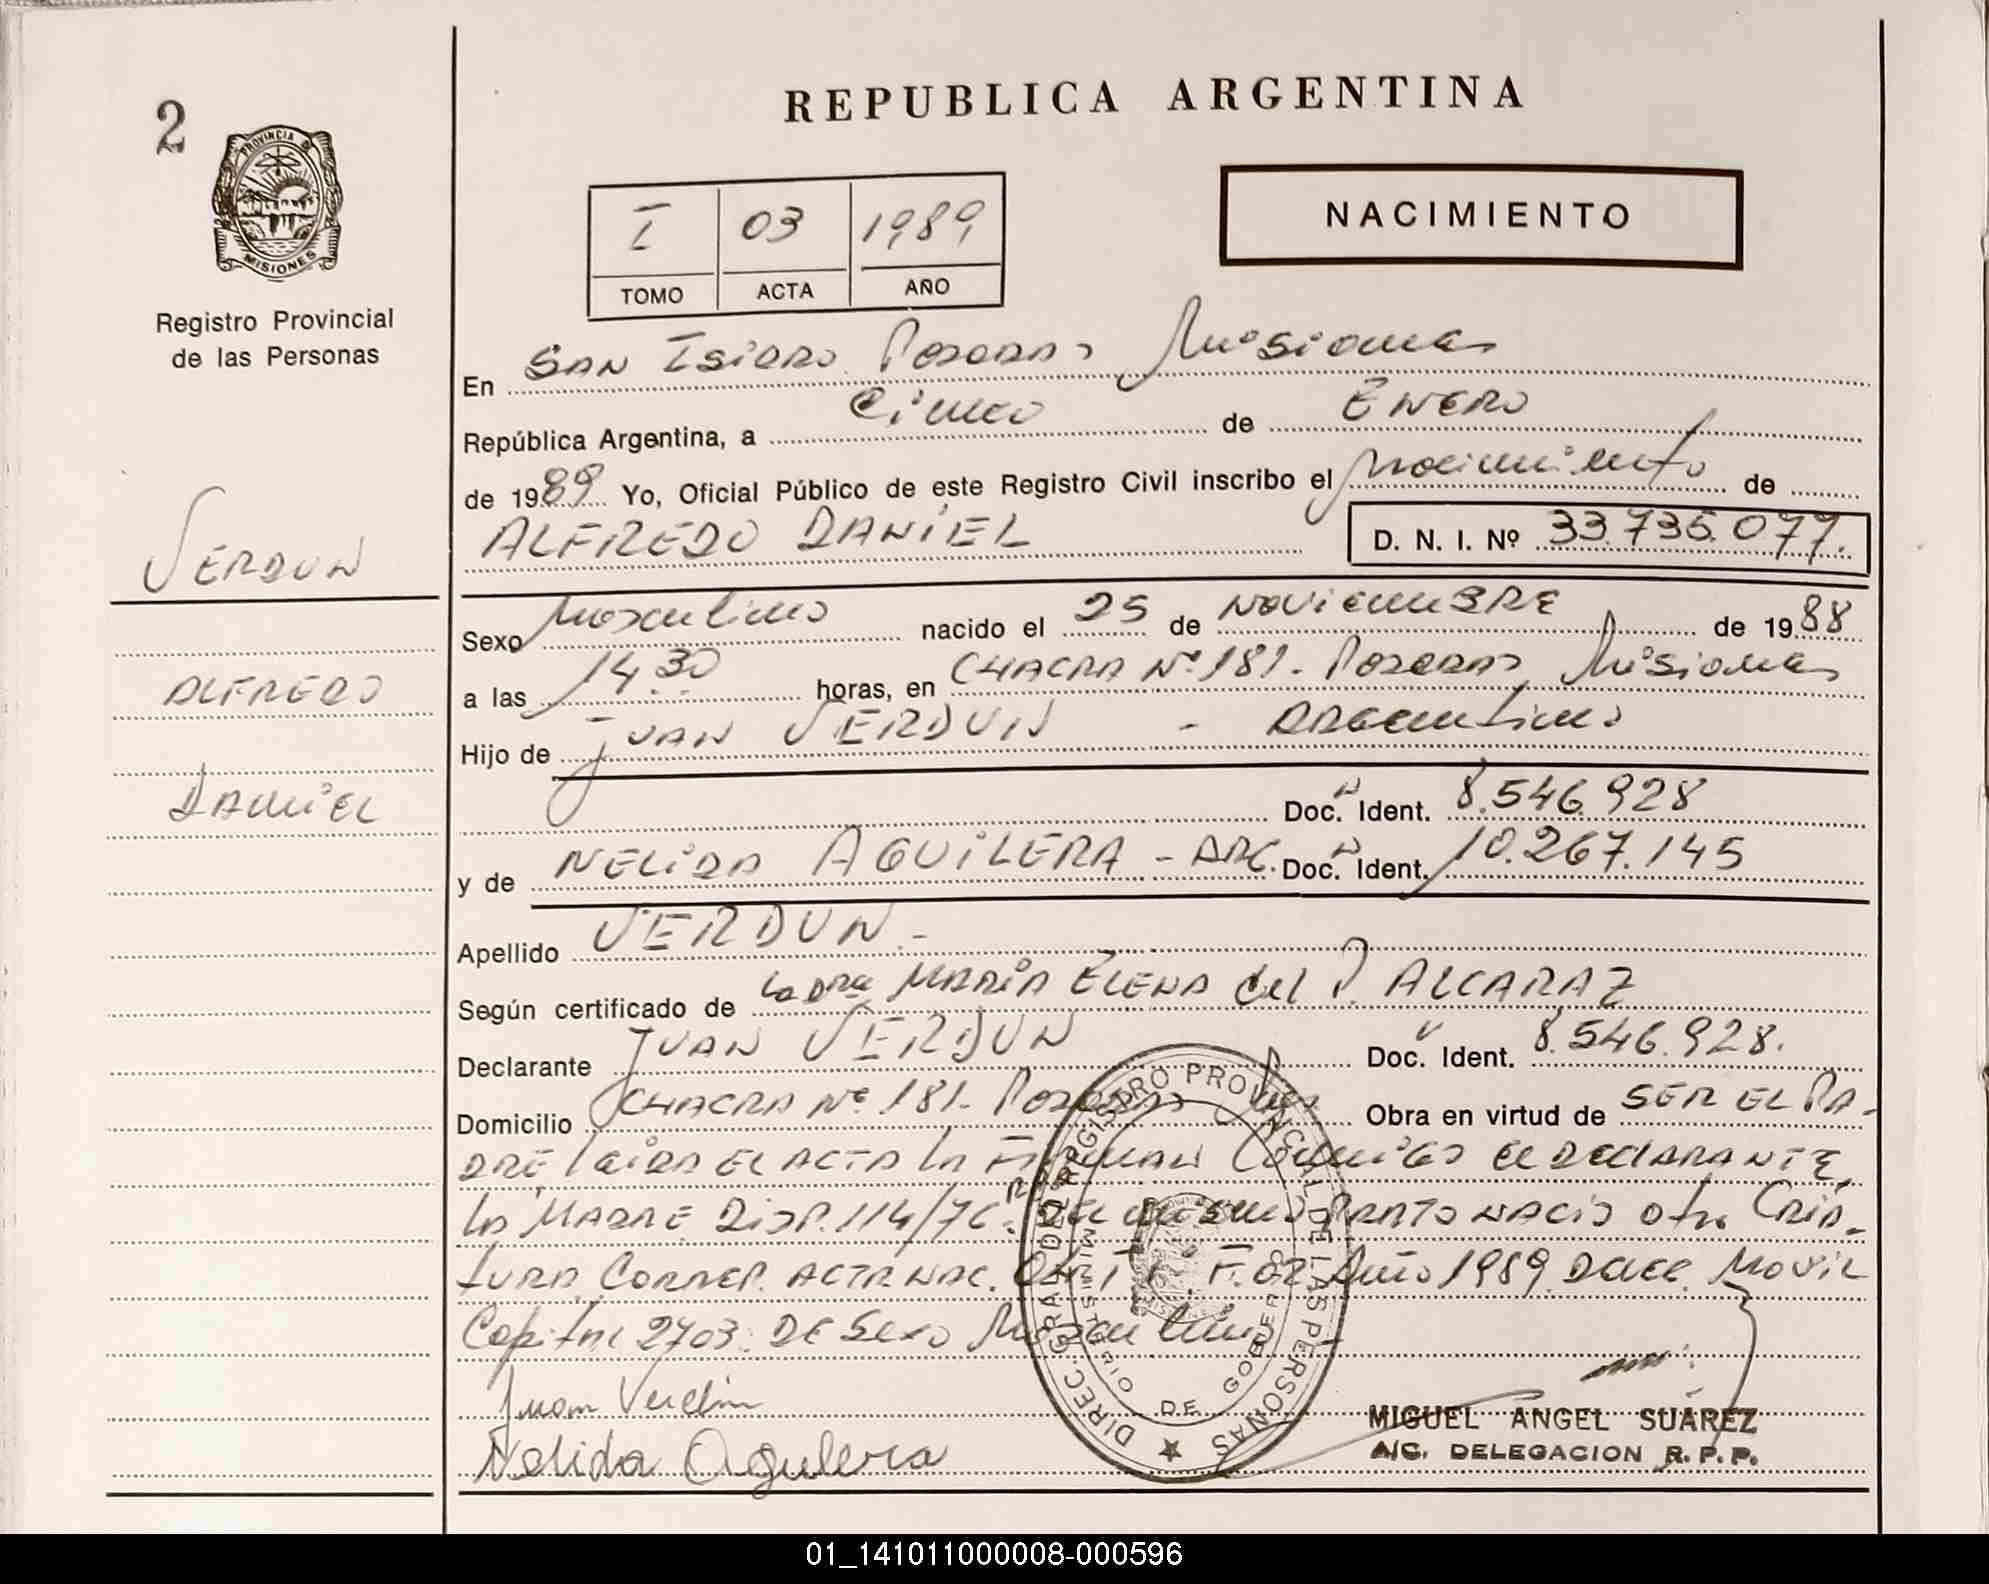 REPUBLICA ARGENTINA
2
PROVINCIA DE
MISIONES
Registro Provincial
de las Personas
I 03 1989
TOMO ACTA AÑO
NACIMIENTO
En SAN ISIDRO POSADAS Misiones
República Argentina, a Cinco de ENERO
de 1989 Yo, Oficial Público de este Registro Civil inscribo el nacimiento de
ALFREDO DANIEL D. N. I. Nº 33.735.077.
VERDUN
ALFREDO
DANIEL
Sexo Masculino nacido el 25 de NOVIEMBRE de 1988
a las 14.30 horas, en CHACRA Nº 181. POSADAS, Misiones
Hijo de JUAN VERDUN - ARGENTINO
Doc. Ident. 8.546.928
y de NELIDA AGUILERA - ARG. Doc. Ident. 10.267.145
Apellido VERDUN.-
Según certificado de la DRA MARIA ELENA del P. ALCARAZ
Declarante JUAN VERDUN Doc. Ident. 8.546.928.
Domicilio CHACRA Nº 181. POSADAS Obra en virtud de SER EL PA-
DRE, leida EL ACTA la FIRMAN Conmigo el DECLARANTE,
la MADRE DISP. 114/76. del mismo PARTO NACIO otra CRIA-
TURA. CORRESP. ACTA NAC. T. I F. 02 Año 1989. MOVIL
2703. DE Sexo Masculino
Juan Verdún
Nelida Aguilera
DIREC. GRAL. DEL REGISTRO PROVINCIAL DE LAS PERSONAS
MINISTERIO DE GOBIERNO
MIGUEL ANGEL SUÁREZ
A/C. DELEGACION R. P. P.
01_141011000008-000596